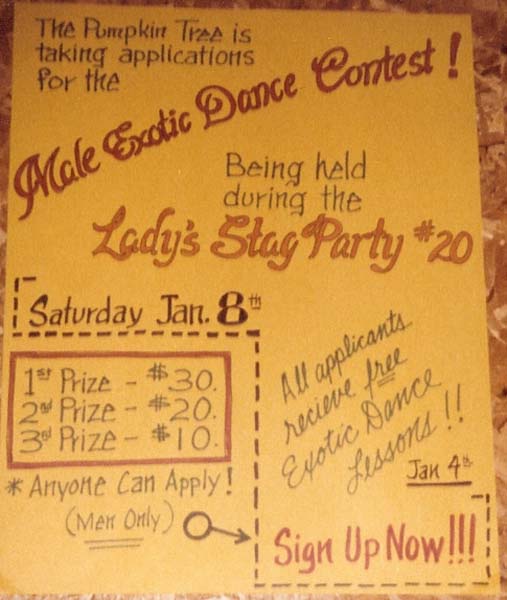 The Pumpkin Tree is
taking applications
for the
Male Exotic Dance Contest!
Being held
during the
Lady's Stag Party #20
Saturday Jan. 8th
1st Prize - $30.
2nd Prize - $20.
3rd Prize - $10.
* Anyone Can Apply!
(Men Only)
All applicants
recieve free
Exotic Dance
Lessons!!
Jan 4th
Sign Up Now!!!